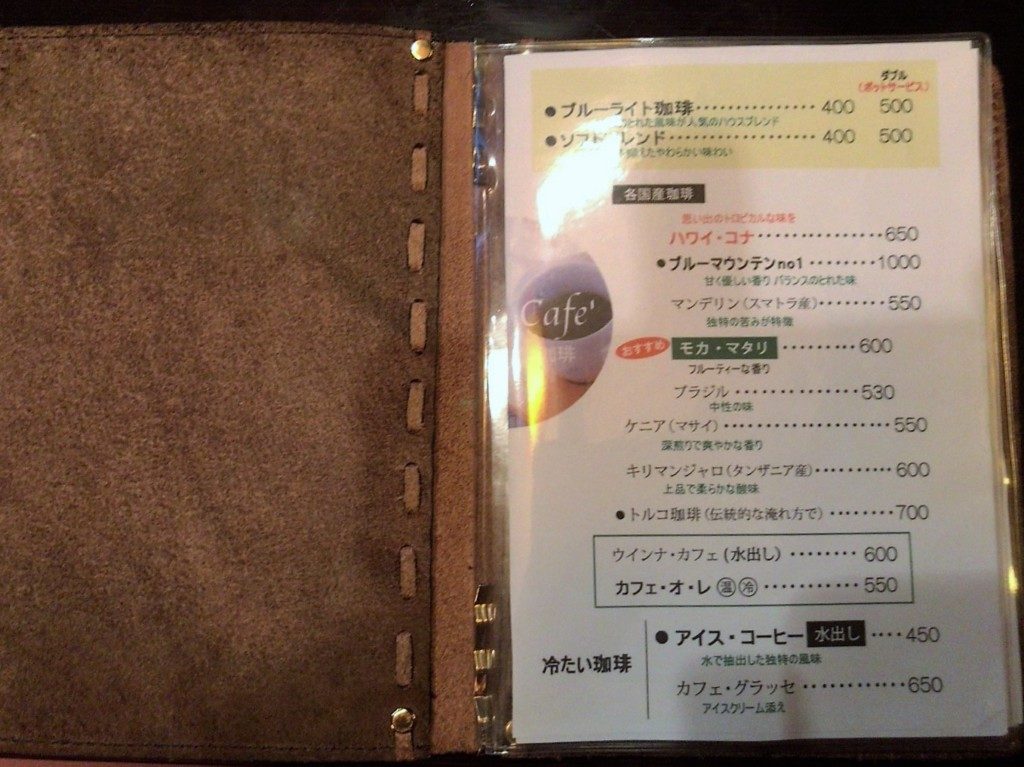 ダブル
(ポットサービス)
●ブルーライト珈琲・・・・・・・・・・・・・・・ 400 500
のとれた風味が人気のハウスブレンド
レンド・・・・・・・・・・・・・・・・・・ 400 500
たやわらかい味わい
各国産珈琲
思い出のトロピカルな味を
ハワイ・コナ・・・・・・・・・・・・・・・・650
●ブルーマウンテンno1・・・・・・・・・1000
甘く優しい香り バランスのとれた味
マンデリン(スマトラ産)・・・・・・・・550
独特の苦みが特徴
おすすめ モカ・マタリ・・・・・・・・・600
フルーティーな香り
ブラジル・・・・・・・・・・・・・・・530
中性の味
ケニア(マサイ)・・・・・・・・・・・・・・・・・・・・・550
深煎りで爽やかな香り
キリマンジャロ(タンザニア産)・・・・・・・・・・600
上品で柔らかな酸味
●トルコ珈琲(伝統的な淹れ方で)・・・・・・・・700
ウインナ・カフェ(水出し)・・・・・・・・600
カフェ・オ・レ 温 冷・・・・・・・・・・・・550
冷たい珈琲
●アイス・コーヒー 水出し・・・・450
水で抽出した独特の風味
カフェ・グラッセ・・・・・・・・・・・・650
アイスクリーム添え
Cafe'
珈琲